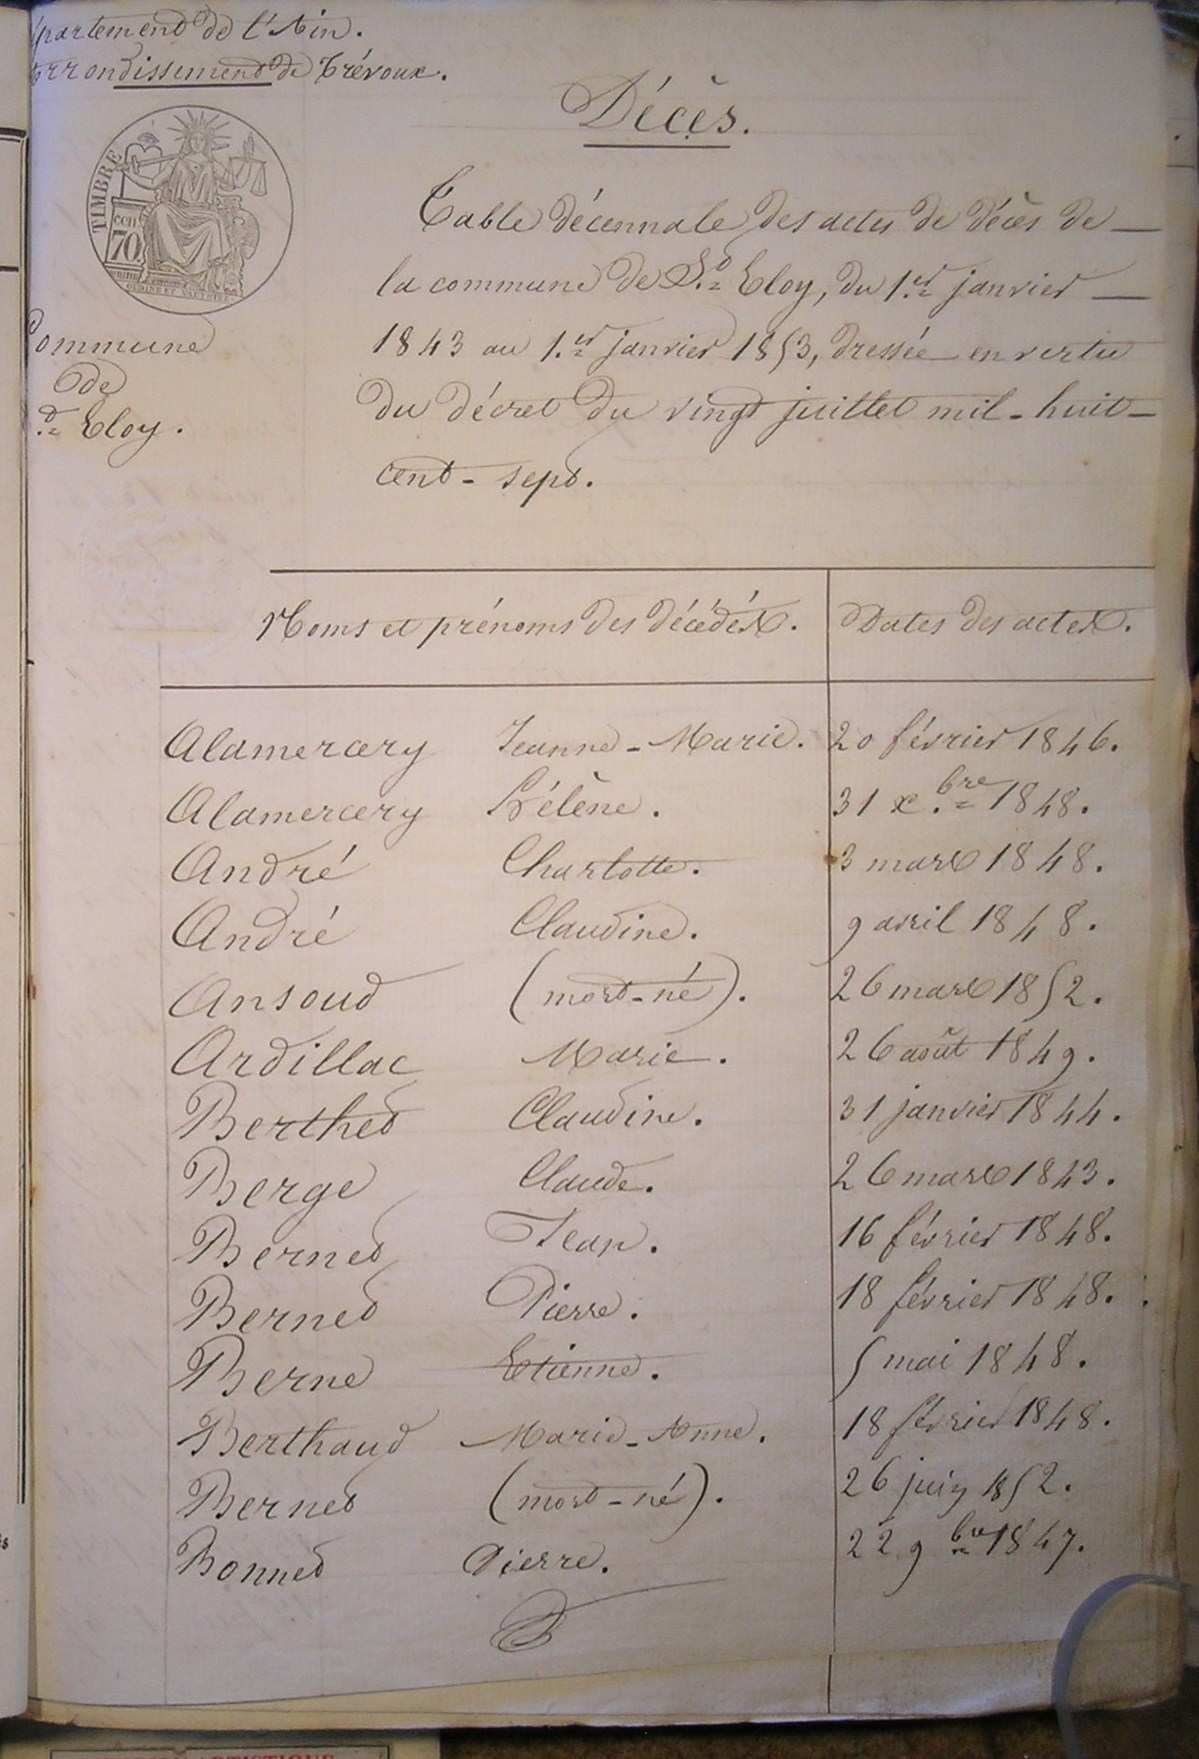 partement de l'Ain.
arrondissement de Trévoux.
TIMBRE
70
Commune
de
St Eloy.
Décès.
Table décennale des actes de décès de —
la commune de St Eloy, du 1.er janvier —
1843 au 1.er janvier 1853, dressée en vertu
du décret du vingt juillet mil-huit-
cent-sept.
Noms et prénoms des décédés. Dates des actes.
Alamercery Jeanne-Marie. 20 février 1846.
Alamercery Hélène. 31 x.bre 1848.
André Charlotte. 3 mars 1848.
André Claudine. 9 avril 1848.
Ansoud (mort-né). 26 mars 1852.
Ardillac Marie. 26 août 1849.
Berthet Claudine. 31 janvier 1844.
Berge Claude. 26 mars 1843.
Bernet Jean. 16 février 1848.
Bernet Pierre. 18 février 1848.
Berne Etienne. 5 mai 1848.
Berthaud Marie-Anne. 18 février 1848.
Bernet (mort-né). 26 juin 1852.
Bonnet Pierre. 22 9bre 1847.